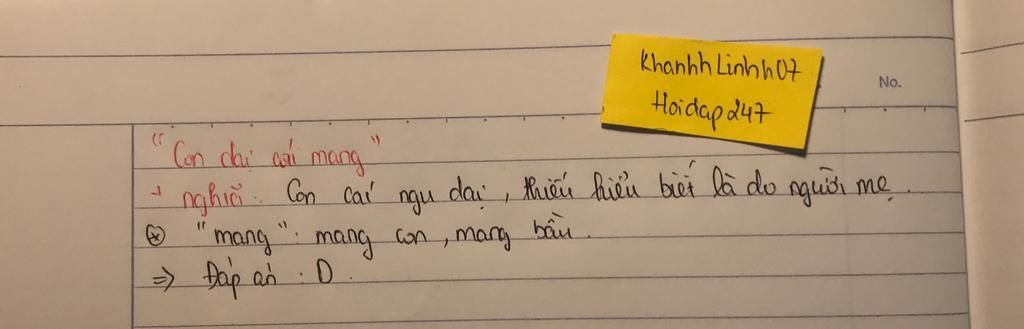 KhanhhLinhh07
Hoidap247
No.
"Con dại cái mang"
→ nghĩa: Con cái ngu dại, thiếu hiểu biết là do người mẹ.
⊗ "mang": mang con, mang bầu.
⇒ Đáp án: D.